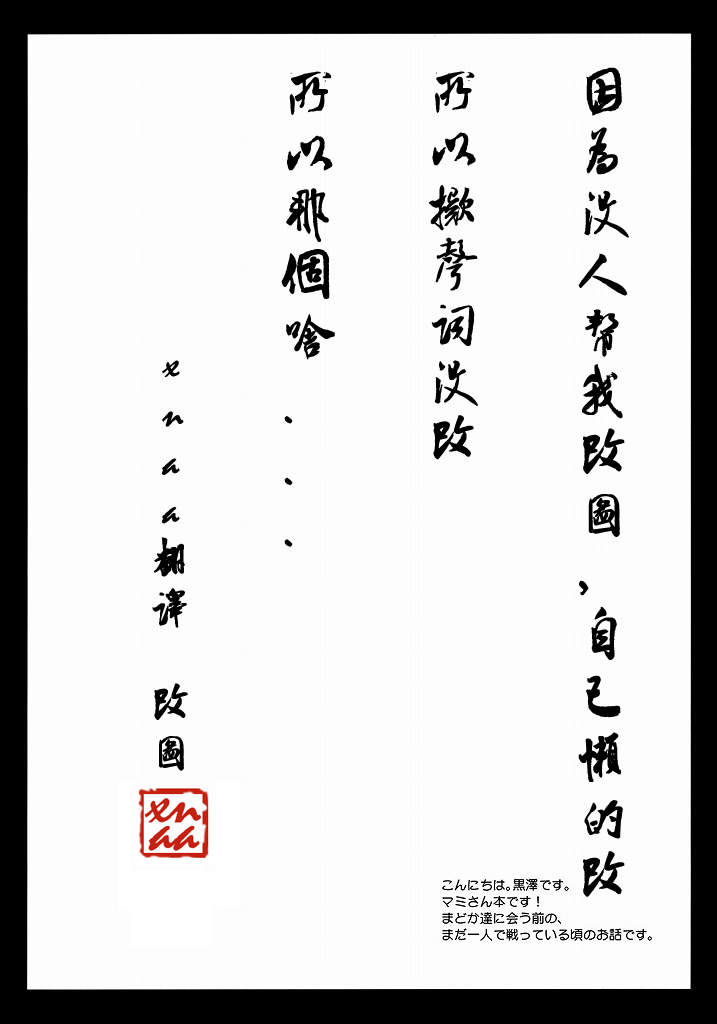 因為没人幫我改圖，自己懶的改
所以擬聲词没改
所以那個啥...
xnaa翻譯 改圖
xn
aa
こんにちは。黒澤です。
マミさん本です！
まどか達に会う前の、
まだ一人で戦っている頃のお話です。